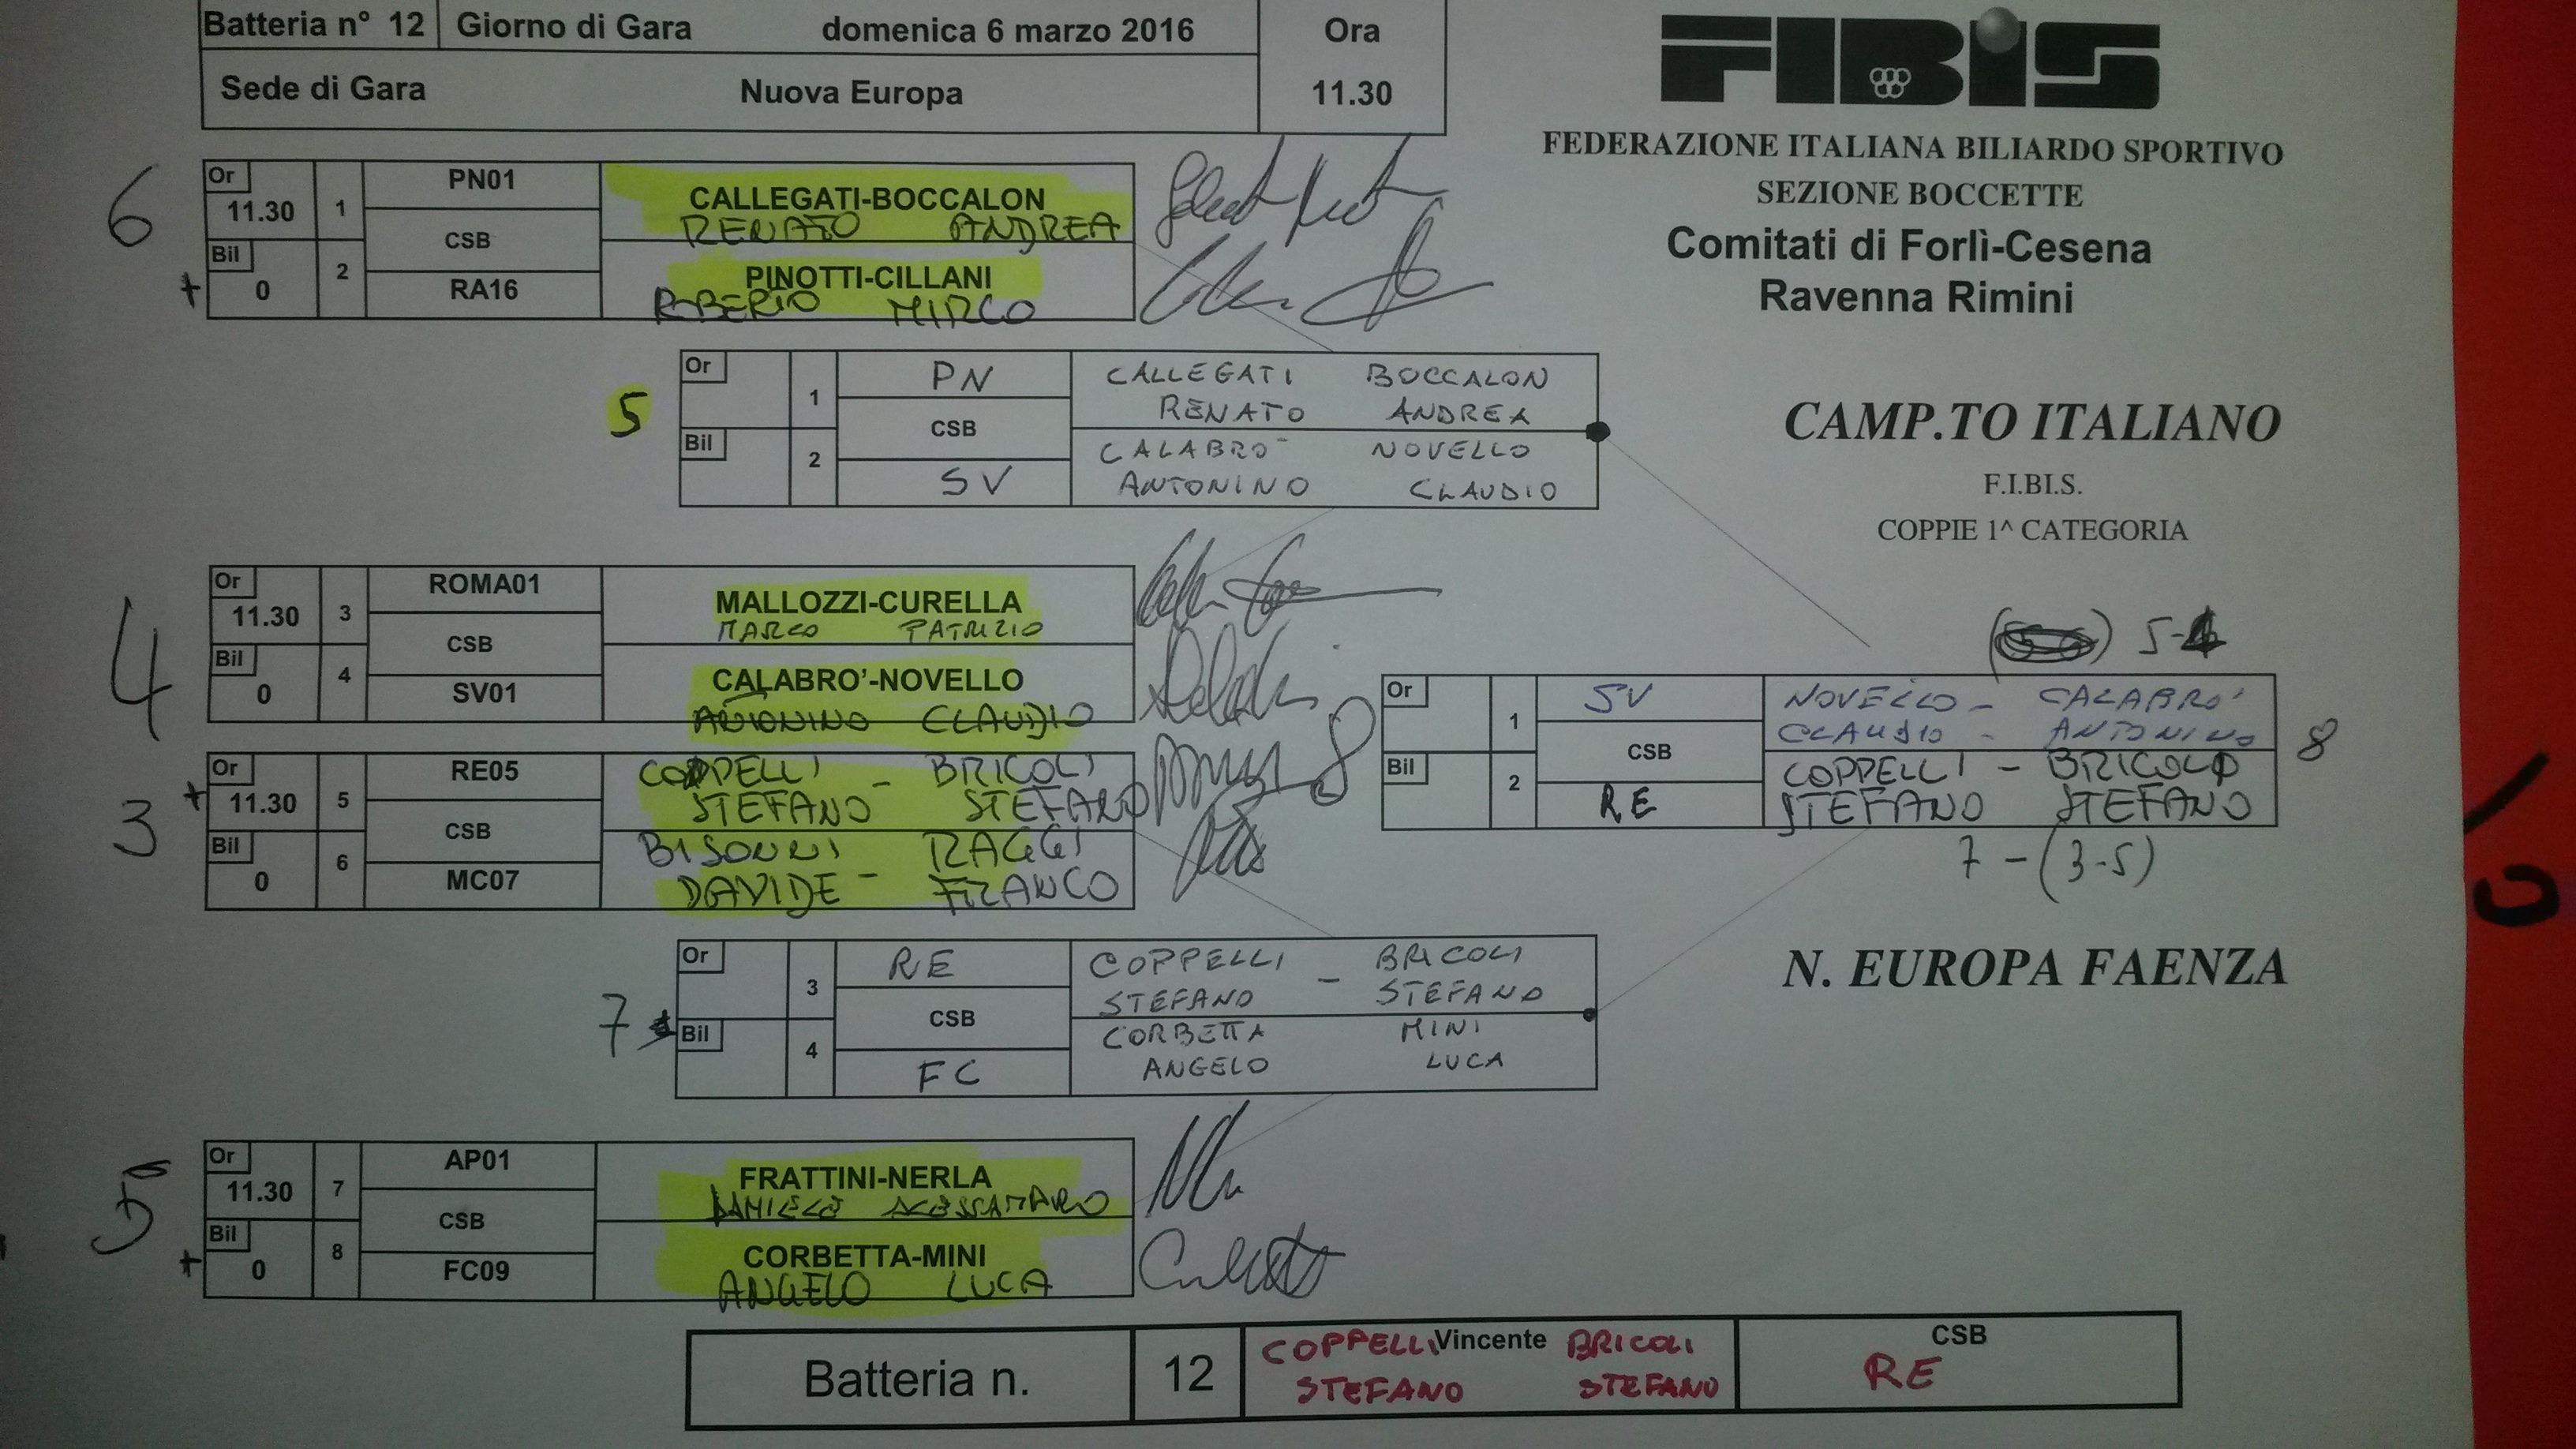 Batteria n° 12 Giorno di Gara domenica 6 marzo 2016 Ora
Sede di Gara Nuova Europa 11.30
FIBIS
FEDERAZIONE ITALIANA BILIARDO SPORTIVO
SEZIONE BOCCETTE
Comitati di Forlì-Cesena
Ravenna Rimini
CAMP.TO ITALIANO
F.I.BI.S.
COPPIE 1^ CATEGORIA
N. EUROPA FAENZA
6
Or 11.30 1 PN01 CALLEGATI-BOCCALON
RENATO ANDREA
CSB
Bil 0 2 RA16 PINOTTI-CILLANI
ROBERTO MIRCO
5
Or 1 PN CALLEGATI BOCCALON
RENATO ANDREA
CSB
Bil 2 SV CALABRO- NOVELLO
ANTONINO CLAUDIO
4
Or 11.30 3 ROMA01 MALLOZZI-CURELLA
MARCO PATRIZIO
CSB
Bil 0 4 SV01 CALABRO'-NOVELLO
ANTONINO CLAUDIO
3
Or 11.30 5 RE05 COPPELLI - BRICOLI
STEFANO STEFANO
CSB
Bil 0 6 MC07 BISONNI - RAGGI
DAVIDE FRANCO
8
5-4
Or 1 SV NOVELLO - CALABRO'
CLAUDIO - ANTONINO
CSB
8
Bil 2 RE COPPELLI - BRICOLO
STEFANO STEFANO
7 - (3-5)
7
Or 3 RE COPPELLI - BRICOLI
STEFANO STEFANO
CSB
Bil 4 FC CORBETTA MINI
ANGELO LUCA
5
Or 11.30 7 AP01 FRATTINI-NERLA
DANIELE ALESSANDRO
CSB
Bil 0 8 FC09 CORBETTA-MINI
ANGELO LUCA
Batteria n. 12 Vincente CSB
COPPELLI BRICOLI
STEFANO STEFANO RE